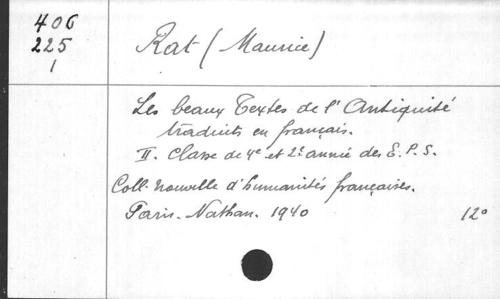 406
225
1
Rat (Maurice)
Les beaux Textes de l'Antiquité
traduits en français.
II. Classe de 4e et 2e année des E.P.S.
Coll. nouvelle d'humanités françaises.
Paris. Nathan. 1940 12°